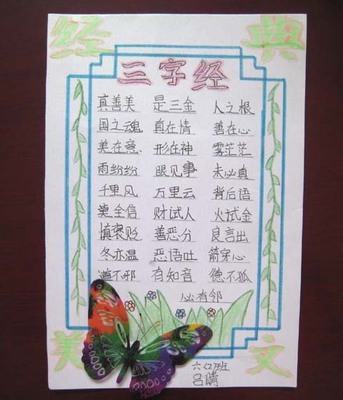 经 典
三字经
真善美 是三金 人之根
国之魂 真在情 善在心
美在意 形在神 雾茫茫
雨纷纷 眼见事 未必真
千里风 万里云 背后语
莫全信 财试人 火试金
慎褒贬 善恶分 良言出
冬亦温 恶语吐 箭穿心
不邪 有知音 德不孤
必有邻
美 文
六(2)班
吕晴